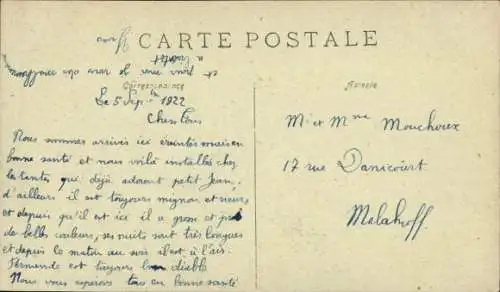 CARTE POSTALE
CORRESPONDANCE
ADRESSE
Le 5 Sept 1922
Chers tous
Nous sommes arrivés ici éreintés mais en
bonne santé et nous voilà installés chez
les tantes qui déjà adorent petit Jean,
d'ailleurs il est toujours mignon et
et depuis qu'il est ici il a grossi et pris
de belles couleurs, ses nuits sont très longues
et depuis le matin au soir il est à l'air.
Fernande est toujours diable
Nous vous espérons tous en bonne santé
Mr et Mme Mouchoux
17 rue Danicourt
Malakoff.